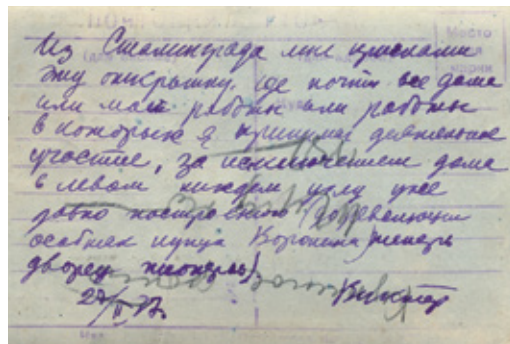 Из Сталинграда мне прислали
эту открытку. где почти все дома
или мои работы или работы
в которых я принимал деятельное
участие, за исключением дома
в левом нижнем углу уже
давно построенного (
особняк купца Воронина, теперь
дворец пионеров)
Виктор
Место
марки